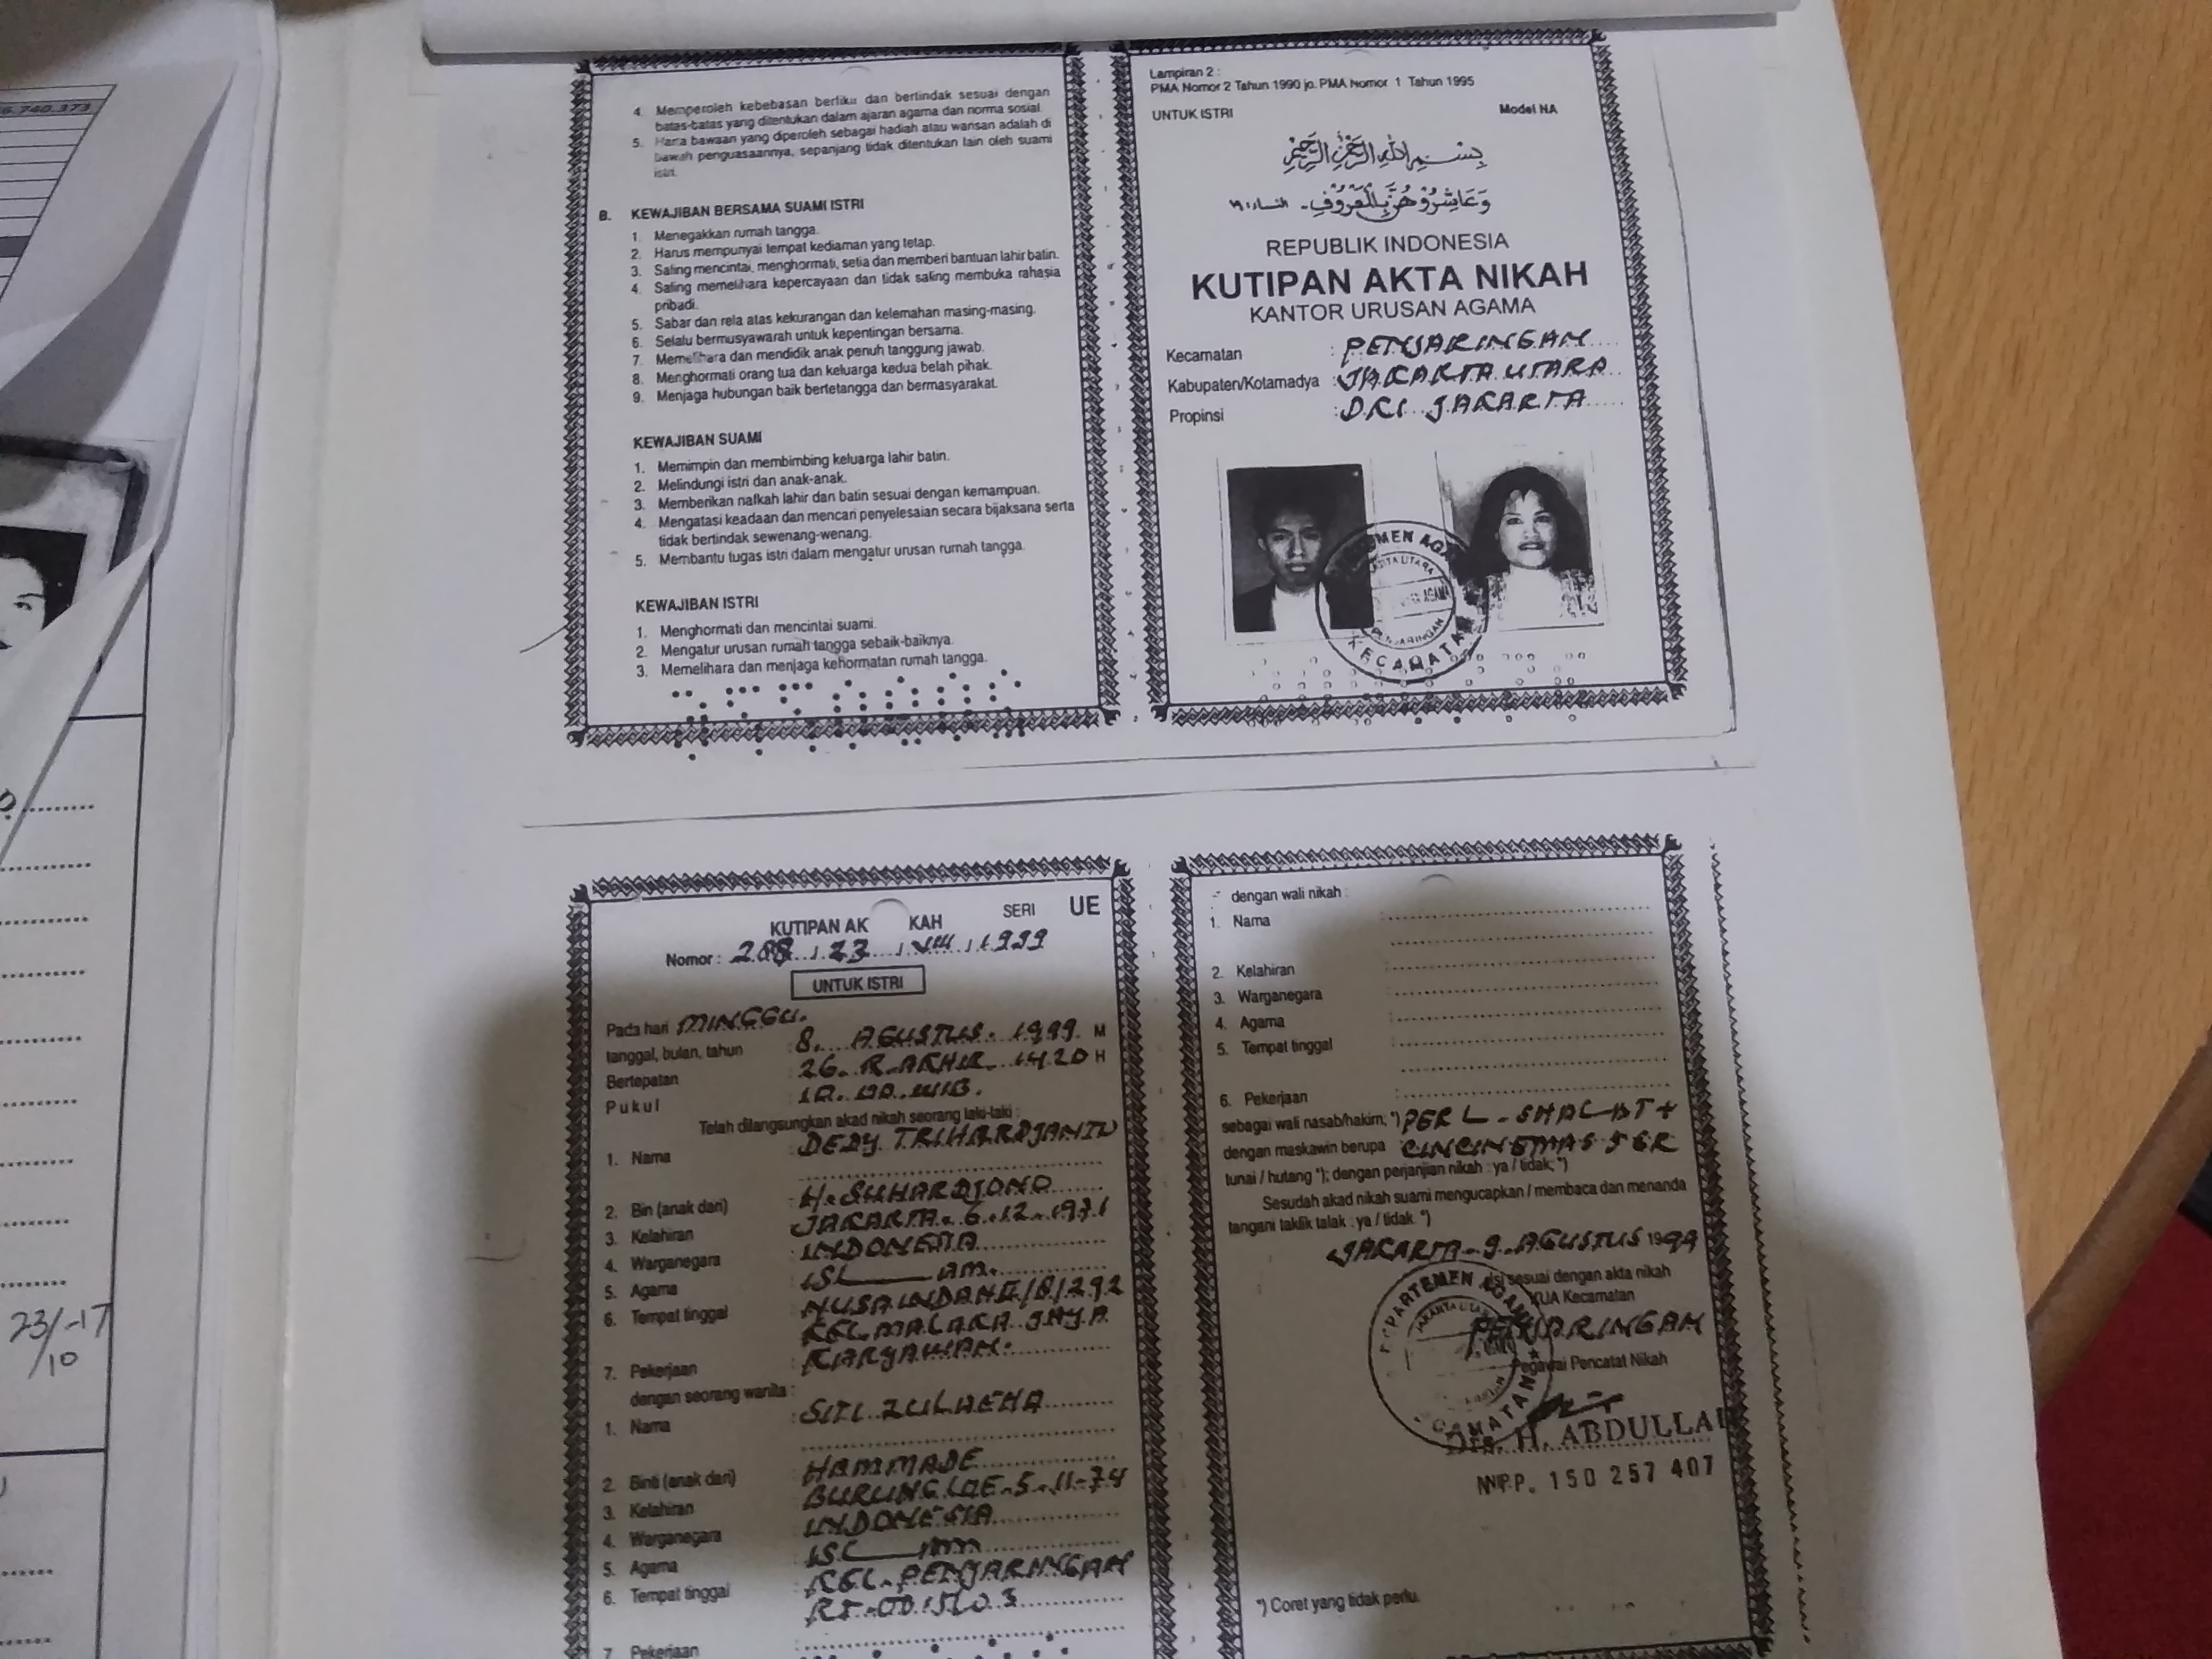 6.740.373
4. Memperoleh kebebasan berfikir dan bertindak sesuai dengan
batas-batas yang ditentukan dalam ajaran agama dan norma sosial.
5. Harta bawaan yang diperoleh sebagai hadiah atau warisan adalah di
bawah penguasaannya, sepanjang tidak ditentukan lain oleh suami
istri.
B. KEWAJIBAN BERSAMA SUAMI ISTRI
1. Menegakkan rumah tangga.
2. Harus mempunyai tempat kediaman yang tetap.
3. Saling mencintai, menghormati, setia dan memberi bantuan lahir batin.
4. Saling memelihara kepercayaan dan tidak saling membuka rahasia
pribadi.
5. Sabar dan rela atas kekurangan dan kelemahan masing-masing.
6. Selalu bermusyawarah untuk kepentingan bersama.
7. Memelihara dan mendidik anak penuh tanggung jawab.
8. Menghormati orang tua dan keluarga kedua belah pihak.
9. Menjaga hubungan baik bertetangga dan bermasyarakat.
KEWAJIBAN SUAMI
1. Memimpin dan membimbing keluarga lahir batin.
2. Melindungi istri dan anak-anak.
3. Memberikan nafkah lahir dan batin sesuai dengan kemampuan.
4. Mengatasi keadaan dan mencari penyelesaian secara bijaksana serta
tidak bertindak sewenang-wenang.
5. Membantu tugas istri dalam mengatur urusan rumah tangga.
KEWAJIBAN ISTRI
1. Menghormati dan mencintai suami.
2. Mengatur urusan rumah tangga sebaik-baiknya.
3. Memelihara dan menjaga kehormatan rumah tangga.
Lampiran 2 :
PMA Nomor 2 Tahun 1990 jo. PMA Nomor 1 Tahun 1995
UNTUK ISTRI Model NA
بِسْمِ اللهِ الرَّحْمٰنِ الرَّحِيْمِ
وَعَاشِرُوْهُنَّ بِالْمَعْرُوْفِ - النساء: ١٩
REPUBLIK INDONESIA
KUTIPAN AKTA NIKAH
KANTOR URUSAN AGAMA
Kecamatan : PENJARINGAN
Kabupaten/Kotamadya : JAKARTA UTARA
Propinsi : DKI JAKARTA
PENJARINGAN
KECAMATAN
KUTIPAN AK KAH SERI UE
Nomor : 288 / 23 / VIII / 1999
UNTUK ISTRI
Pada hari MINGGU.
tanggal, bulan, tahun 8. AGUSTUS. 1999 M
Bertepatan 26. R. AKHIR 1420 H
Pukul 10.00 WIB.
Telah dilangsungkan akad nikah seorang laki-laki :
1. Nama DEDY TRIHARDJANTO
2. Bin (anak dari) H. SUHARDJONO
3. Kelahiran JAKARTA. 6.12.1971
4. Warganegara INDONESIA
5. Agama ISLAM.
6. Tempat tinggal NUSA INDAH II/8/292
KEL. MALAKA JAYA
7. Pekerjaan KARYAWAN.
dengan seorang wanita :
1. Nama SITI ZULAEHA
2. Binti (anak dari) HAMMADE
3. Kelahiran BURUNGLOE. 5-11-74
4. Warganegara INDONESIA
5. Agama ISLAM
6. Tempat tinggal KEL. PENJARINGAN
7. Pekerjaan
- dengan wali nikah :
1. Nama
2. Kelahiran
3. Warganegara
4. Agama
5. Tempat tinggal
6. Pekerjaan
sebagai wali nasab/hakim; *) PER L. SHALAT +
dengan maskawin berupa CINCIN EMAS 5 GR
tunai / hutang *); dengan perjanjian nikah : ya / tidak; *)
Sesudah akad nikah suami mengucapkan / membaca dan menanda
tangani taklik talak : ya / tidak *)
JAKARTA - 9. AGUSTUS 1999
Isi sesuai dengan akta nikah
KUA Kecamatan
PENJARINGAN
Pegawai Pencatat Nikah
DEPARTEMEN AGAMA
JAKARTA UTARA
Drs. H. ABDULLAH
NIP. 150 257 407
*) Coret yang tidak perlu.
23/-17
/10